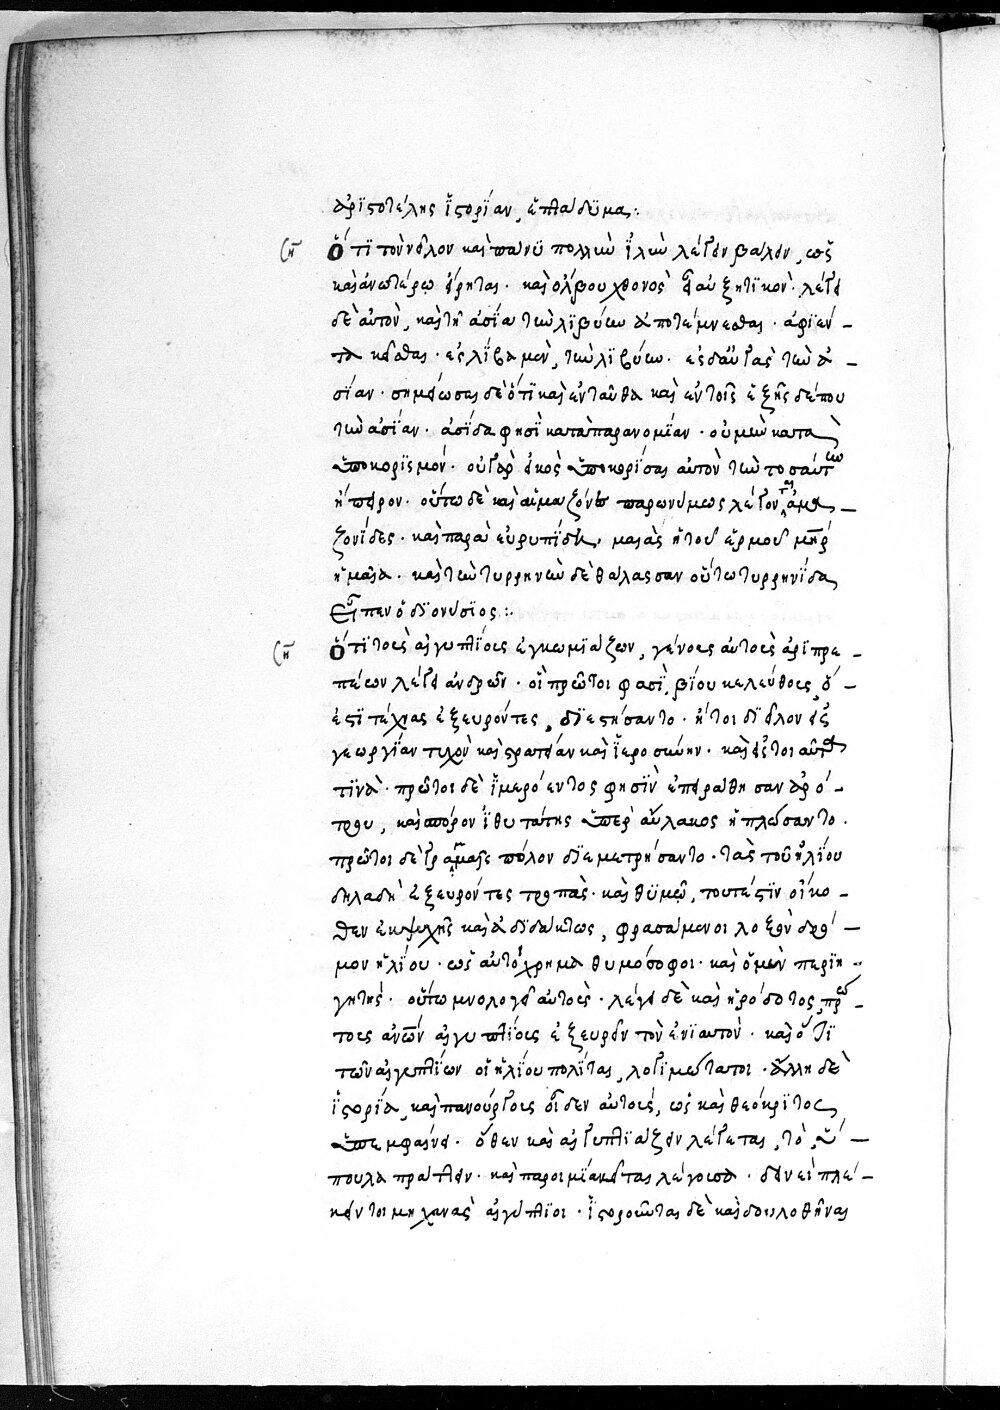 ἀριστοτέλης ἱστορίαν, ἐπλαύδυμα:
ση Ὅτι τὸν νεῖλον καὶ πάνυ πολλὴν ἰλὺν λέγειν βάλειν, ὡς
καὶ ἀνωτέρω εἴρηται. καὶ ὄλβου χθονὸς αὐξητικόν. λέγει
δὲ αὐτὸν, καὶ τῇ ἀσίᾳ τὴν λιβύην ἀποτέμνεσθαι. ἀφιέν-
τα κεῖσθαι. εἰς λίβα μὲν, τὴν λιβύην. εἰς δ' αὐγὰς τὴν ἀ-
σίαν. σημείωσαι δὲ ὅτι καὶ ἐνταῦθα καὶ ἐν τοῖς ἑξῆς δέ που
τὴν ἀσίαν. ἀσίδα φησὶ κατὰ παρανομίαν. οὐ μὴν κατὰ
ὑποκορισμόν. οὐ γὰρ εἰκὸς ὑποκορίσαι αὐτὸν τὴν τοσαύτην
ἤπειρον. οὕτω δὲ καὶ αἱ μαζόνες παρωνύμως λέγονται ἀμα-
ζονίδες. καὶ παρὰ εὐριπίδῃ. μαιὰς ἡ τοῦ ἑρμοῦ μήτηρ
ἡ μαῖα. καὶ τὴν τυρρηνὴν δὲ θάλασσαν οὕτω τυρρηνίδα
εἶπεν ὁ διονύσιος:
ση Ὅτι τοὺς αἰγυπτίους ἐγκωμιάζων, γένους αὐτοὺς ἀριπρε-
πέων λέγει ἀνδρῶν. οἳ πρῶτοι φασὶ, βίου κελεύθους, ὅ
ἐστι τέχνας ἐξευρόντες, διεστήσαντο. ἤτοι διεῖλον εἰς
γεωργίαν τυχὸν καὶ στρατείαν καὶ ἱεροσύνην. καὶ εἴς τοι αὐτὰ
τινά. πρῶτοι δὲ ἱμερόεντος φησὶν ἐπειράθησαν ἀρό-
τρου, καὶ σπόρον ἰθυτάτης ὑπὲρ αὔλακος ἡπλώσαντο.
πρῶτοι δὲ γραμμαῖς πόλον διεμετρήσαντο. τὰς τοῦ ἡλίου
δηλαδὴ ἐξευρόντες τροπὰς. καὶ θυμῷ, τουτέστιν οἴκο-
θεν ἐκ ψυχῆς καὶ ἀδιδάκτως, φρασάμενοι λοξὸν δρό-
μον ἡλίου. ὡς αὐτόχρημα θυμόσοφοι. καὶ ὁ μὲν περιη-
γητής. οὕτω μνολογεῖ αὐτούς. λέγει δὲ καὶ ἡρόδοτος, πρώ-
τους ἀνῶν αἰγυπτίους ἐξευρεῖν τὸν ἐνιαυτόν. καὶ ὅτι
τῶν αἰγυπτίων οἱ ἡλίου πολῖται, λογιμώτατοι. ἄλλη δὲ
ἱστορία, καὶ πανούργους οἶδεν αὐτούς, ὡς καὶ θεόκριτος
ὑπεμφαίνει. ὅθεν καὶ αἰγυπτιάζειν λέγεται, τὸ, ὕ-
πουλα πράττειν. καὶ παροιμία κεῖται λέγουσα. δεινοὶ πλέ-
κειν τοι μηχανὰς αἰγύπτιοι. ἱστοροῦνται δὲ καὶ δουλωθῆναι